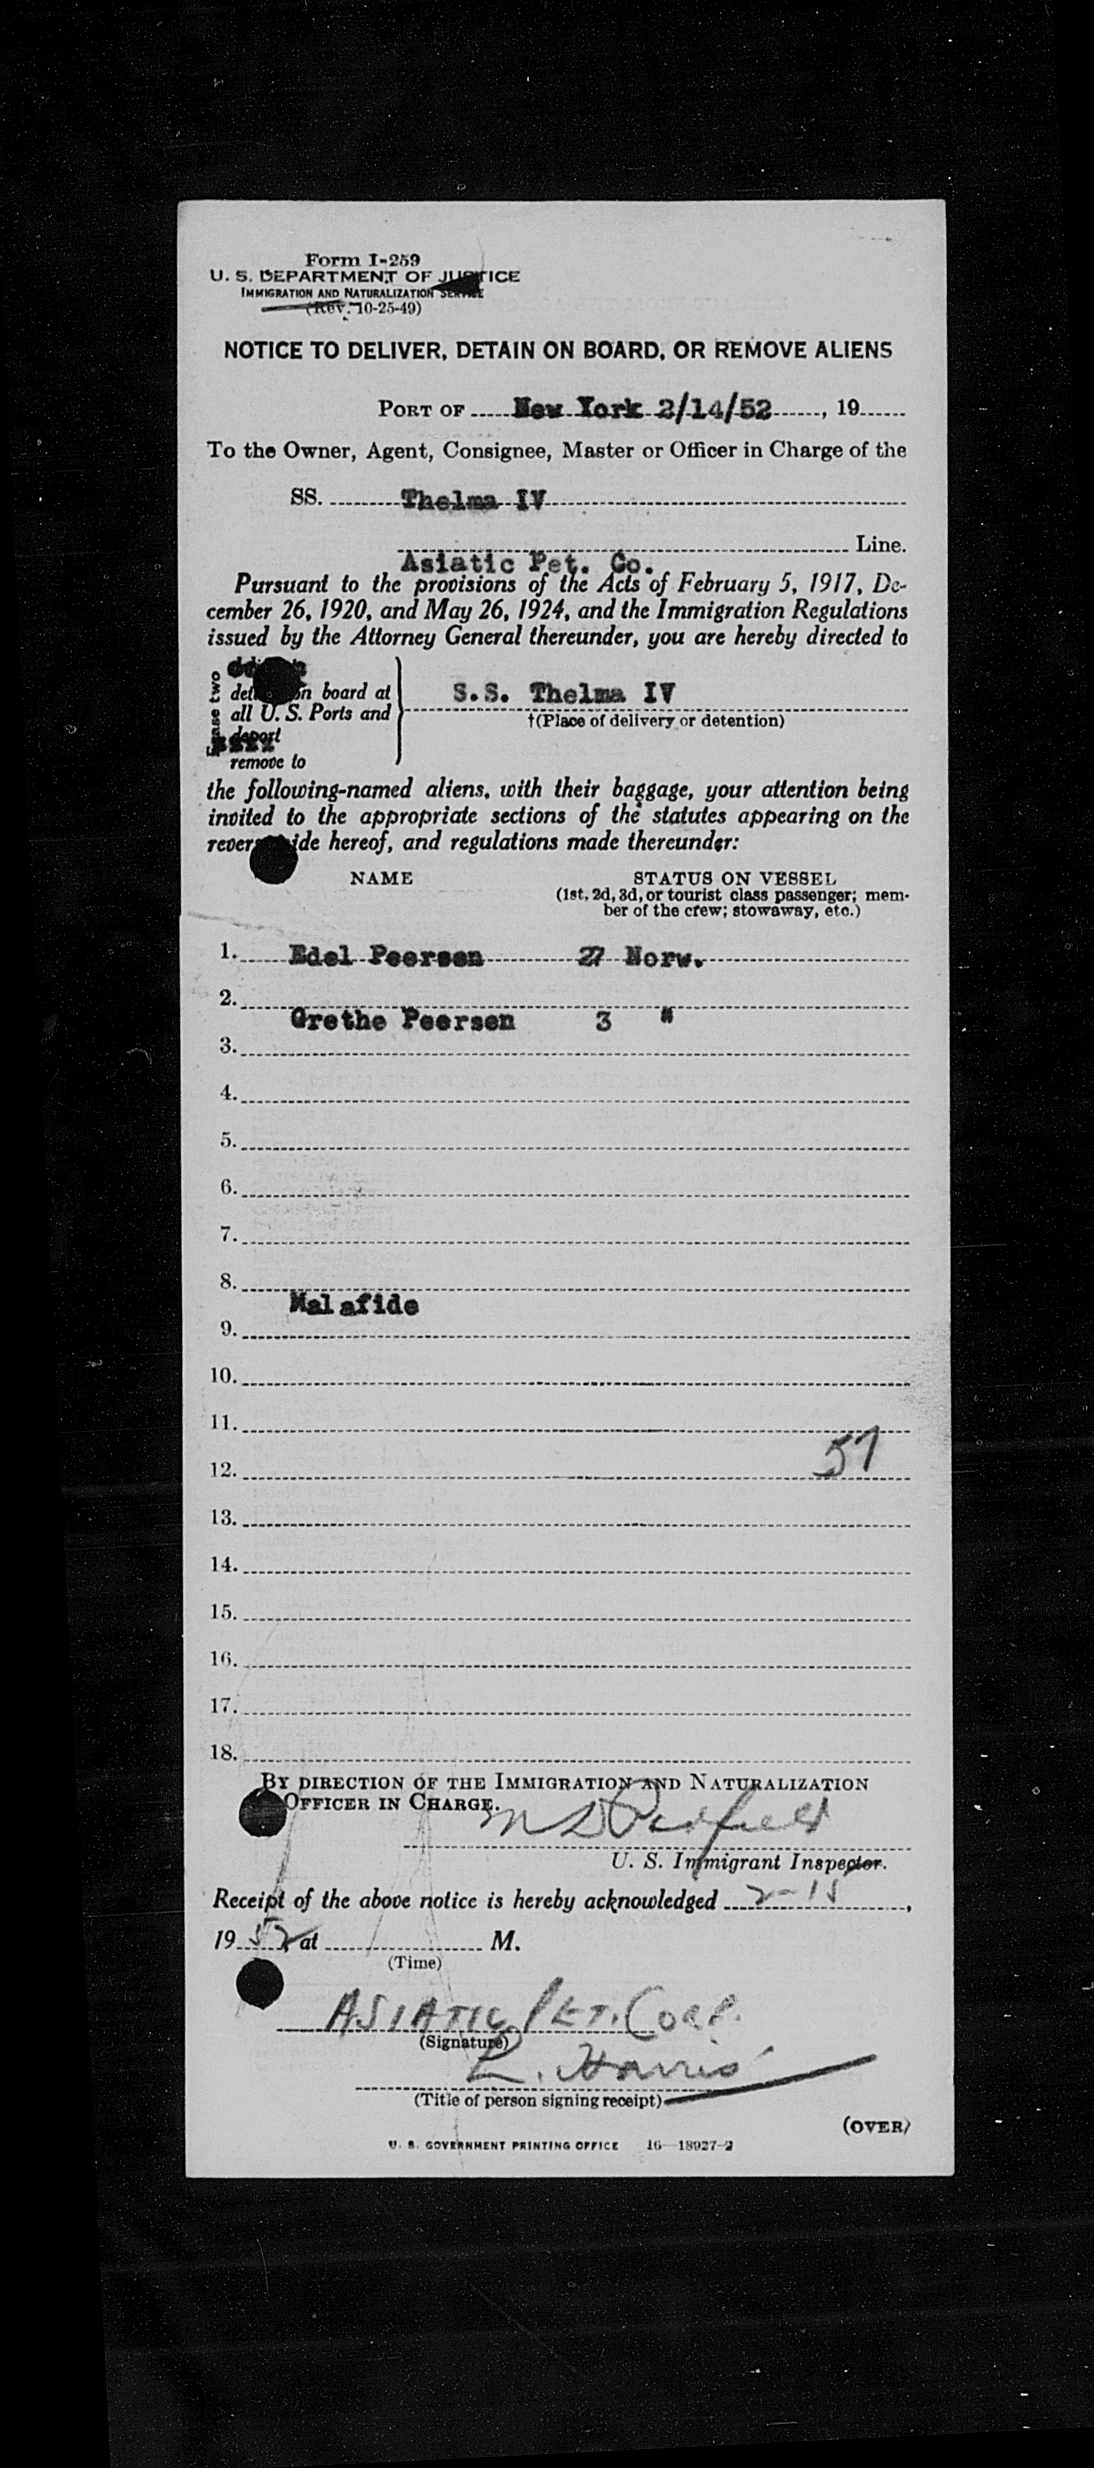 Form I-259
U. S. DEPARTMENT OF JUSTICE
IMMIGRATION AND NATURALIZATION SERVICE
(Rev. 10-25-49)
NOTICE TO DELIVER, DETAIN ON BOARD, OR REMOVE ALIENS
PORT OF New York 2/14/52, 19
To the Owner, Agent, Consignee, Master or Officer in Charge of the
SS. Thelma IV
Line.
Asiatic Pet. Co.
Pursuant to the provisions of the Acts of February 5, 1917, De-
cember 26, 1920, and May 26, 1924, and the Immigration Regulations
issued by the Attorney General thereunder, you are hereby directed to
board at
S.S. Thelma IV
all U. S. Ports and
†(Place of delivery or detention)
deport
remove to
the following-named aliens, with their baggage, your attention being
invited to the appropriate sections of the statutes appearing on the
hereof, and regulations made thereunder:
NAME STATUS ON VESSEL
(1st, 2d, 3d, or tourist class passenger; mem-
ber of the crew; stowaway, etc.)
1. Edel Peersen 27 Norw.
2.
Grethe Peersen 3 "
3.
4.
5.
6.
7.
8.
Malafide
9.
10.
11.
57
12.
13.
14.
15.
16.
17.
18.
BY DIRECTION OF THE IMMIGRATION AND NATURALIZATION
OFFICER IN CHARGE.
U. S. Immigrant Inspector.
Receipt of the above notice is hereby acknowledged 2-15,
1952 at M.
(Time)
ASIATIC PET. CORP.
(Signature)
L. Harris
(Title of person signing receipt)
(OVER)
U. S. GOVERNMENT PRINTING OFFICE 16—18927-2